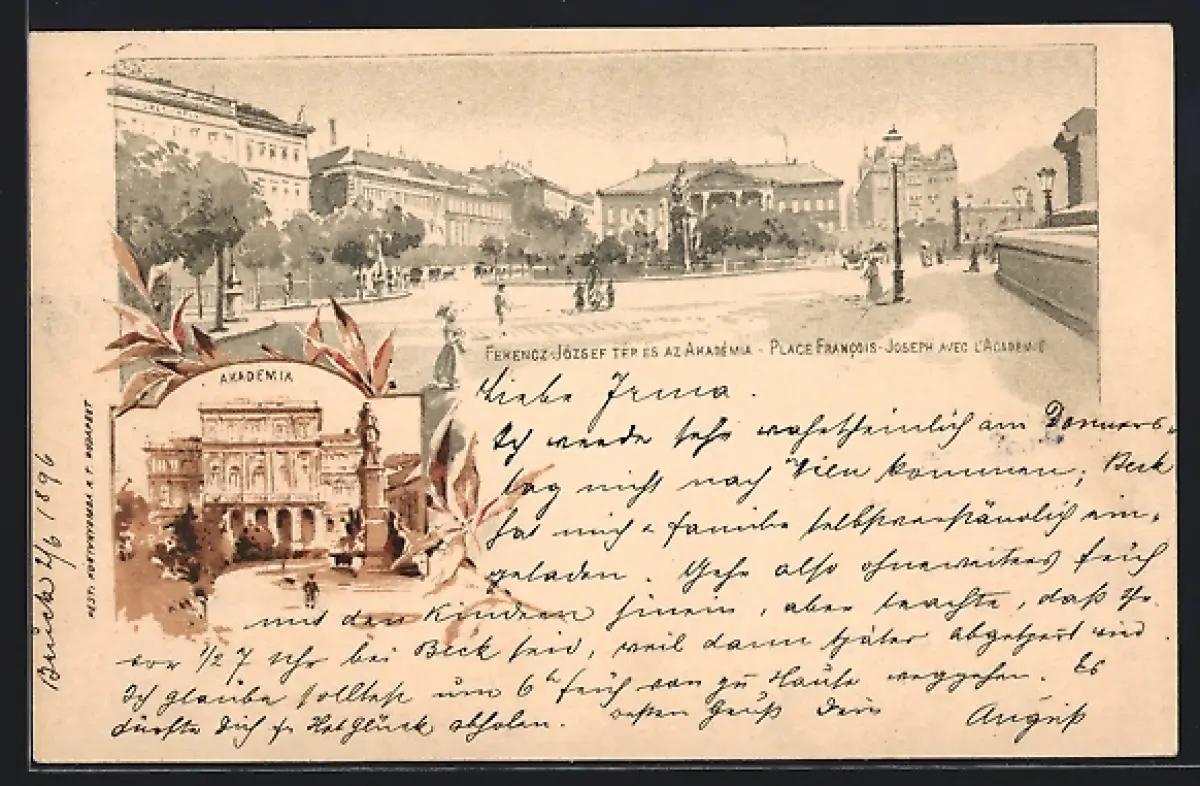 FERENCZ-JÓZSEF TÉR ÉS AZ AKADÉMIA - PLACE FRANÇOIS-JOSEPH AVEC L'ACADÉMIE
AKADÉMIA
PESTI KÖNYVNYOMDA R. T. BUDAPEST
Bruck 2/6 1896
Liebe Irma.
Ich werde sehr wahrscheinlich am Donners-
tag nicht nach Wien kommen; Beck
hat mich & familie selbstverständlich ein-
geladen. Gehe also ohneweiters früh
mit den Kindern hinein, aber trachte, daß Ihr
vor 1/2 7 Uhr bei Beck seid, weil dann später abgesperrt wird.
Ich glaube solltest um 6h früh von zu Hause weggehen. Es
dürfte Dich Glück abholen. besten Gruß Dein
August